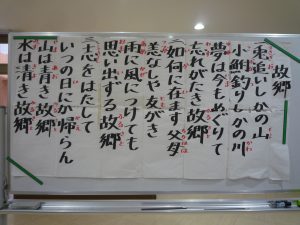 故郷
一兎追いしかの山
小鮒釣りしかの川
夢は今もめぐりて
忘れがたき故郷
二如何に在ます父母
恙なしや友がき
雨に風につけても
思い出ずる故郷
三志をはたして
いつの日にか帰らん
山は青き故郷
水は清き故郷